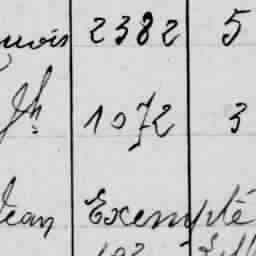 2382 5
Jh 1072 3
Jean Exempté